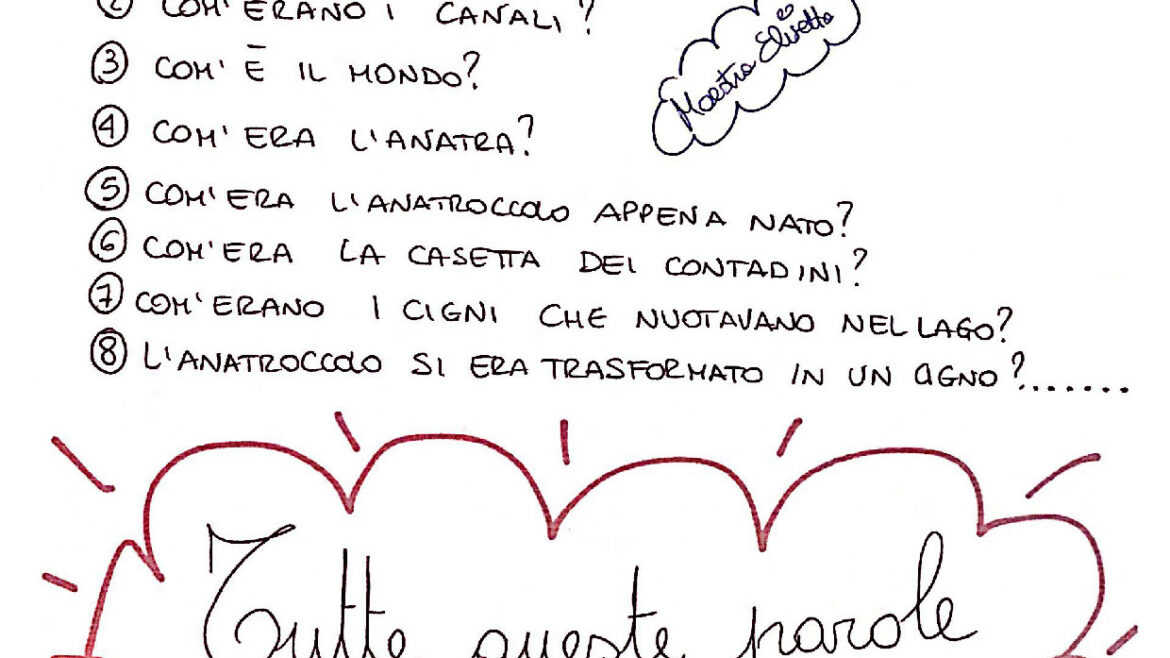 ② COM'ERANO I CANALI?
Maestra Elisetta
③ COM' È IL MONDO?
④ COM'ERA L'ANATRA?
⑤ COM'ERA L'ANATROCCOLO APPENA NATO?
⑥ COM'ERA LA CASETTA DEI CONTADINI?
⑦ COM'ERANO I CIGNI CHE NUOTAVANO NEL LAGO?
⑧ L'ANATROCCOLO SI ERA TRASFORMATO IN UN CIGNO?.......
Tutte queste parole